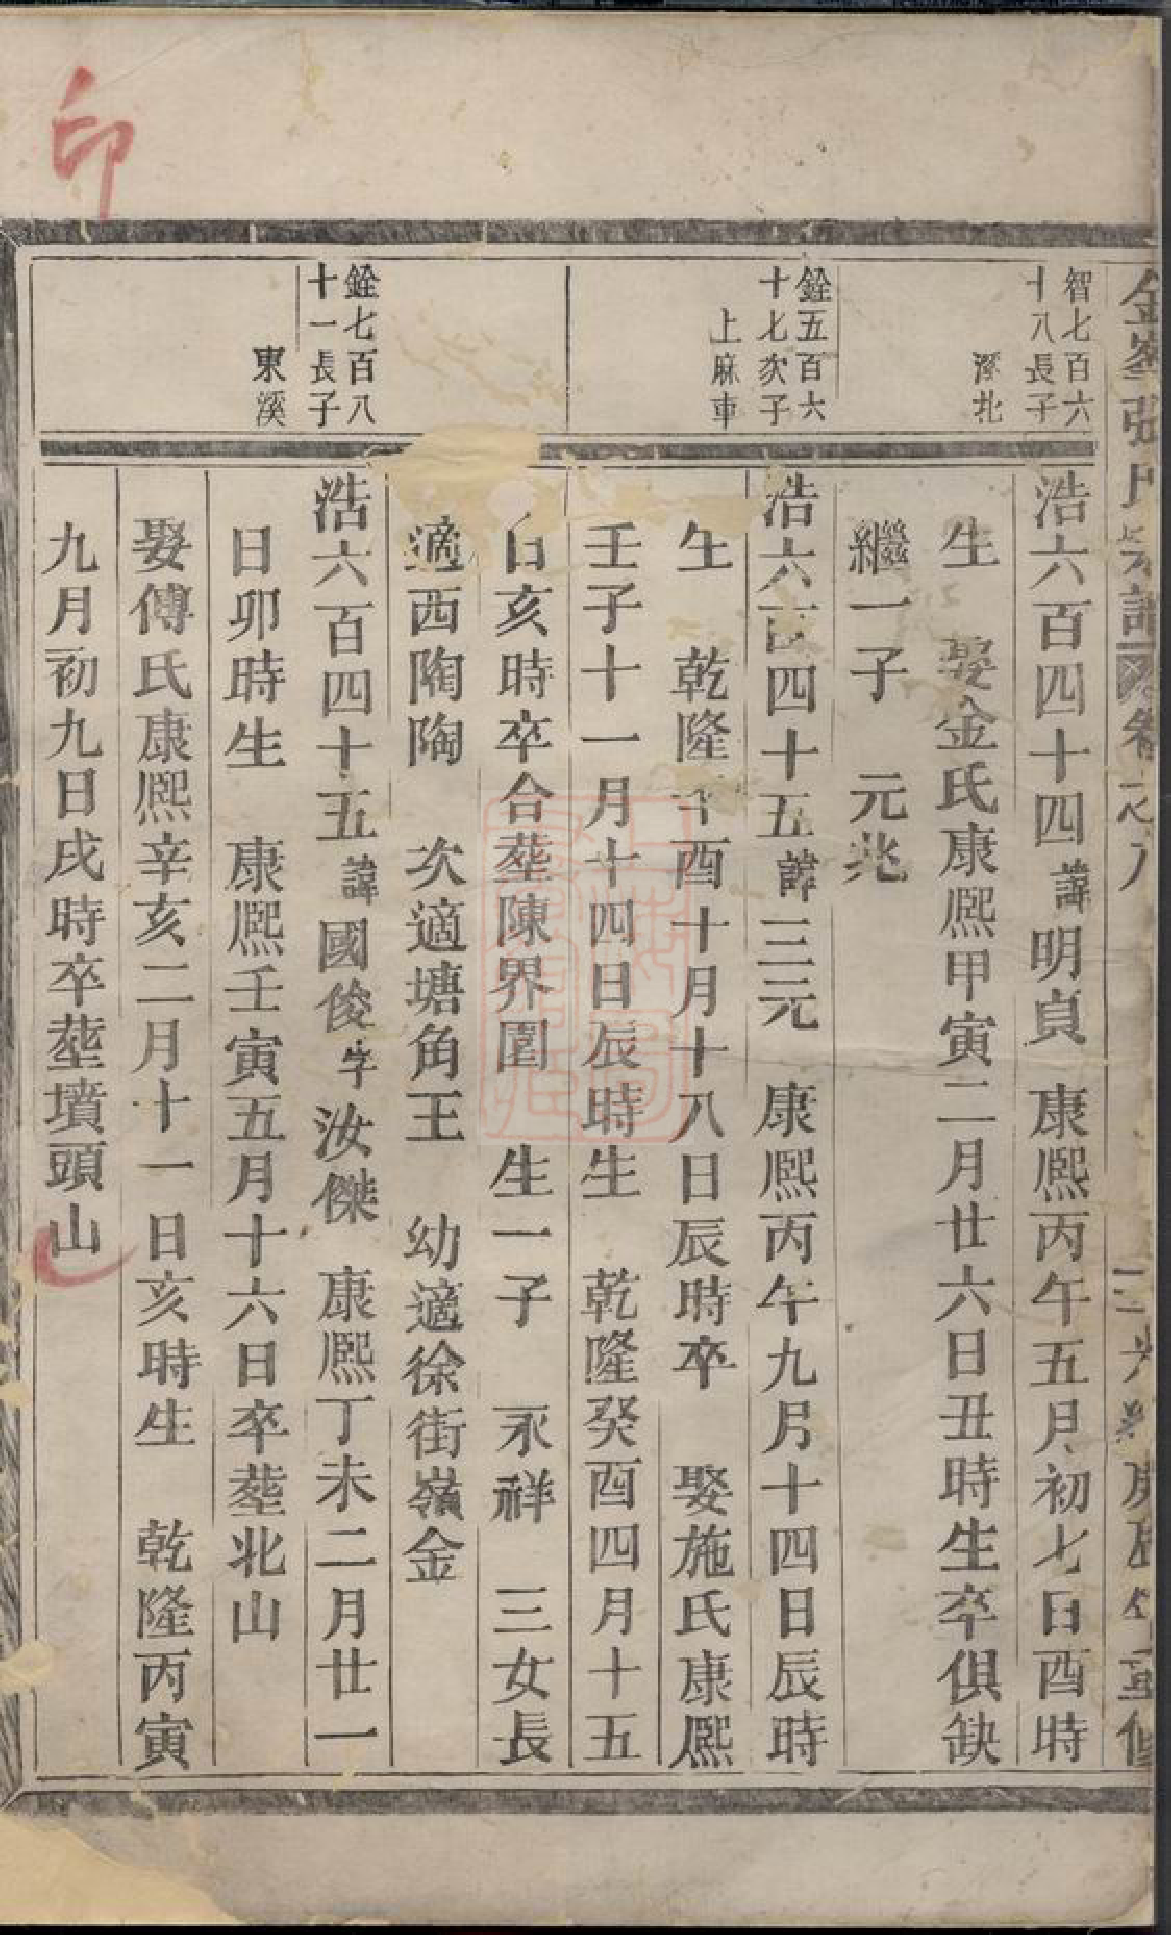 印
智七百六
十八長子
潦北
浩六百四十四諱明貞 康熙丙午五月初七日酉時
生 娶金氏康熙甲寅二月廿六日丑時生卒俱缺
繼一子 元兆
銓五百六
十七次子
上麻車
浩六百四十五諱三元 康熙丙午九月十四日辰時
生 乾隆 酉十月十八日辰時卒 娶施氏康熙
壬子十一月十四日辰時生 乾隆癸酉四月十五
日亥時卒合塟陳界園 生一子 永祥 三女長
適西陶陶 次適塘角王 幼適徐街嶺金
銓七百八
十一長子
東溪
浩六百四十五諱國俊字汝傑 康熙丁未二月廿一
日卯時生 康熙壬寅五月十六日卒塟北山
娶傅氏康熙辛亥二月十一日亥時生 乾隆丙寅
九月初九日戌時卒塟墳頭山